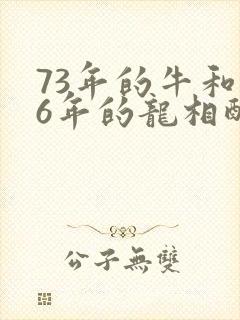 73年的牛和
6年的龍相
公子無雙